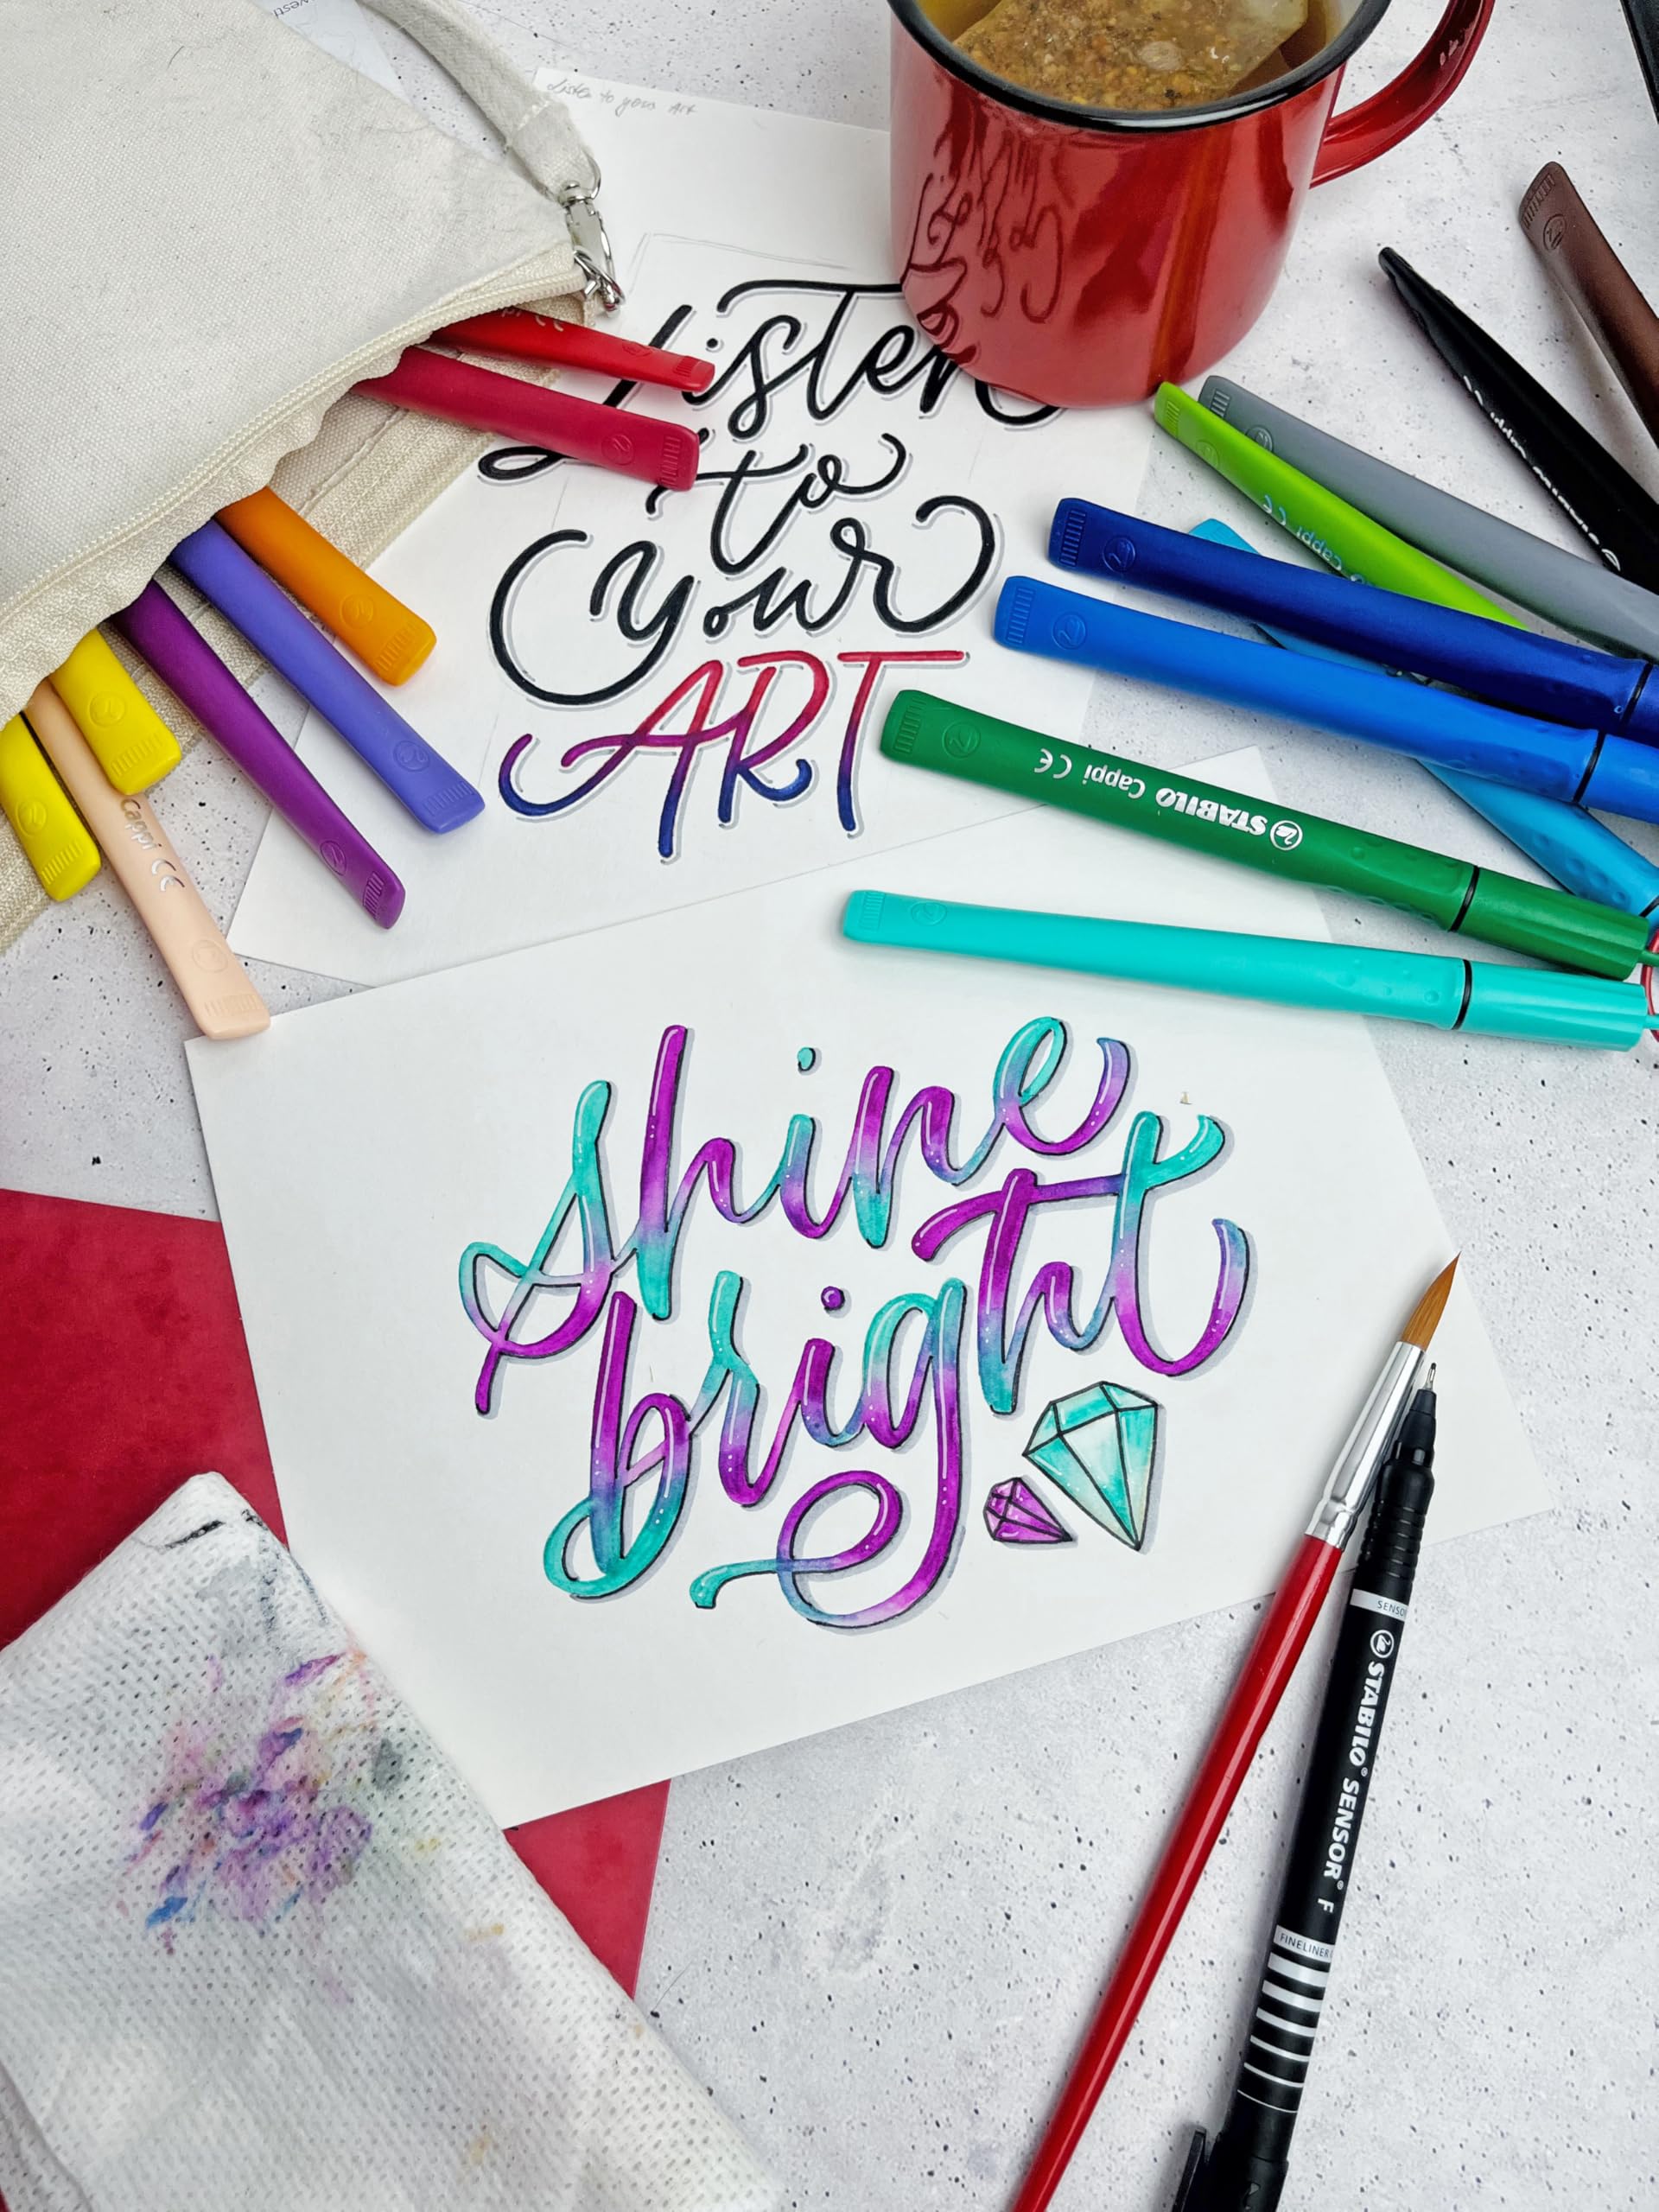 Listen to your Art
Listen
to
your
ART
Cappi CE
Cappi CE
STABILO Cappi CE
shine
bright
SENSO
STABILO® SENSOR® F
FINELINER